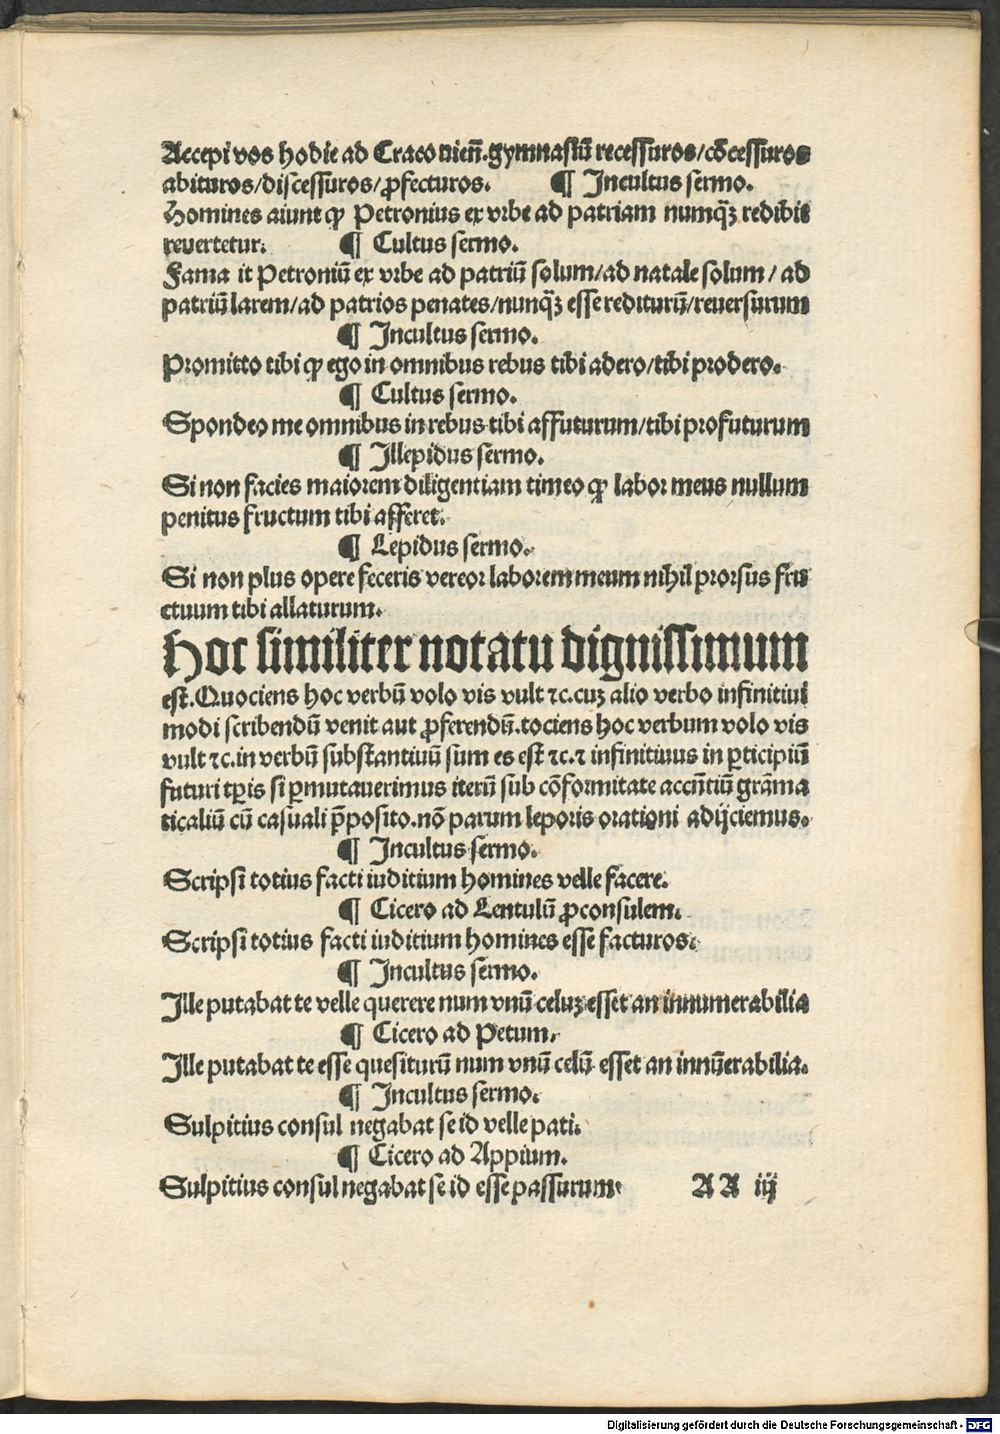 Accepi vos hodie ad Craco nień.gymnasiū recessuros/cōcessuros
abituros/discessuros/ꝓfecturos. ¶ Incultus sermo.
Homines aiunt ꝙ Petronius ex vrbe ad patriam numq̄ꝫ redibit
reuertetur. ¶ Cultus sermo.
Fama it Petroniū ex vrbe ad patriū solum/ad natale solum/ad
patriū larem/ad patrios penates/nunq̄ꝫ esse rediturū/reuersurum
¶ Incultus sermo.
Promitto tibi ꝙ ego in omnibus rebus tibi adero/tibi prodero.
¶ Cultus sermo.
Spondeo me omnibus in rebus tibi affuturum/tibi profuturum
¶ Illepidus sermo.
Si non facies maiorem diligentiam timeo ꝙ labor meus nullum
penitus fructum tibi afferet.
¶ Lepidus sermo.
Si non plus opere feceris vereor laborem meum nihil prorsus fru
ctuum tibi allaturum.
Hoc similiter notatu dignissimum
est.Quociens hoc verbū volo vis vult ⁊c.cuꝫ alio verbo infinitiui
modi scribendū venit aut ꝓferendū.tociens hoc verbum volo vis
vult ⁊c.in verbū substantiuū sum es est ⁊c.⁊ infinitiuus in ꝑticipiū
futuri tꝑis si ꝑmutauerimus iterū sub cōformitate accn̄tiū grāma
ticaliū cū casuali p̄posito.nō parum leporis orationi adijciemus.
¶ Incultus sermo.
Scripsi totius facti iuditium homines velle facere.
¶ Cicero ad Lentulū ꝓconsulem.
Scripsi totius facti iuditium homines esse facturos.
¶ Incultus sermo.
Ille putabat te velle querere num vnū celuꝫ esset an innumerabilia
¶ Cicero ad Petum.
Ille putabat te esse quesiturū num vnū celū esset an innūerabilia.
¶ Incultus sermo.
Sulpitius consul negabat se id velle pati.
¶ Cicero ad Appium.
Sulpitius consul negabat se id esse passurum. AA iij
Digitalisierung gefördert durch die Deutsche Forschungsgemeinschaft - DFG